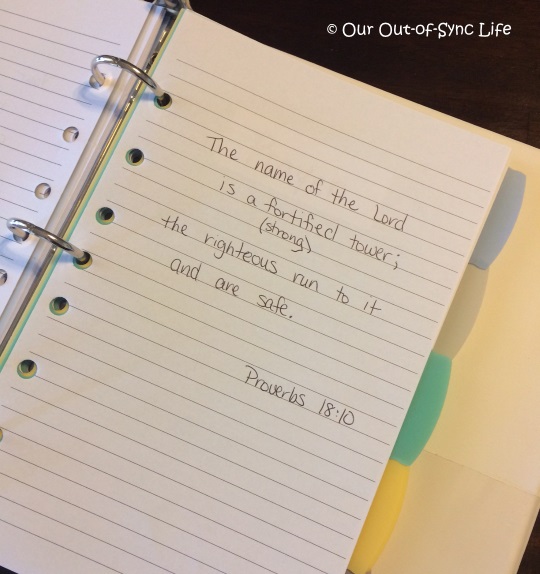 © Our Out-of-Sync Life
The name of the Lord
is a fortified tower;
(strong)
the righteous run to it
and are safe.
Proverbs 18:10